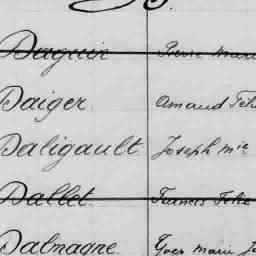 Daguin Pierre Marie
Daiger Amand Féli
Daligault Joseph Mie
Dallet Francis Felix
Dalmagne Yves Marie Jo